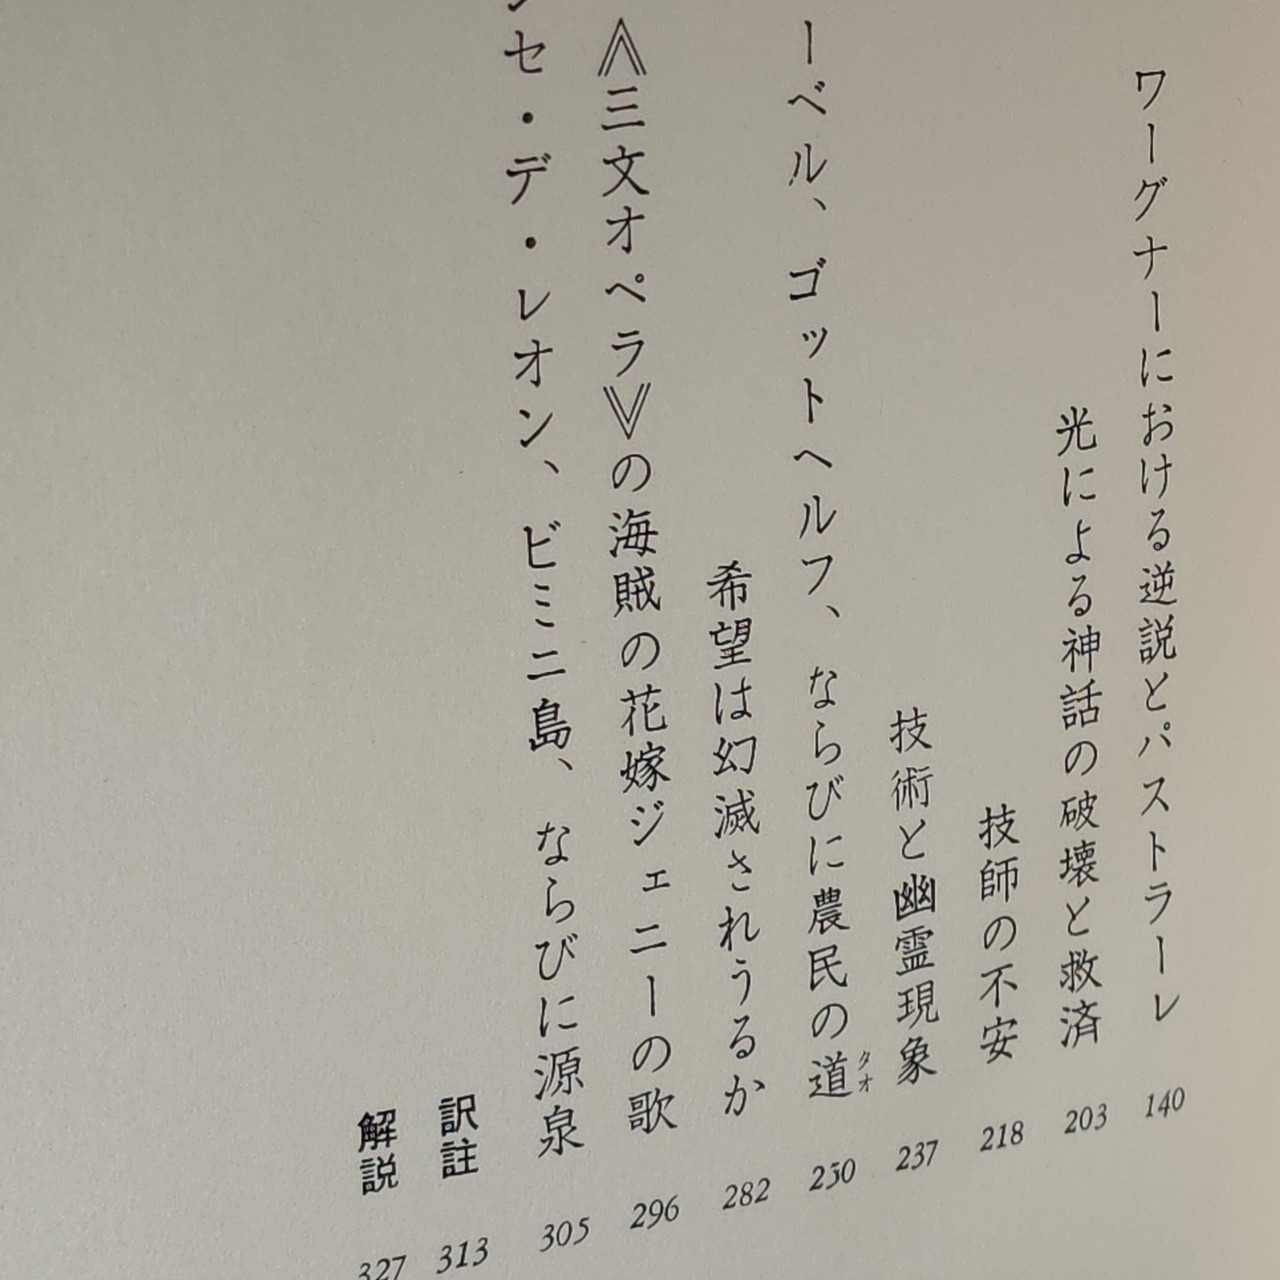 ワーグナーにおける逆説とパストラーレ 140
光による神話の破壊と救済 203
技師の不安 218
技術と幽霊現象 237
ーベル、ゴットヘルフ、ならびに農民の道タオ 250
希望は幻滅されうるか 282
《三文オペラ》の海賊の花嫁ジェニーの歌 296
ンセ・デ・レオン、ビミニ島、ならびに源泉 305
訳註 313
解説 327